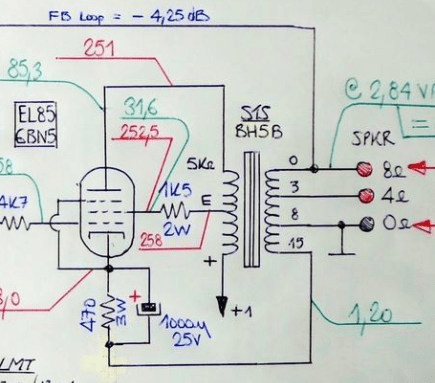 FB Loop = - 4,25 dB
251
85,3
@ 2,84 V
EL85
6BN5
31,6
252,5
S1S
BH5B
SPKR
=
58
5KΩ
0
8Ω
1K5
3
4Ω
4K7
E
2W
8
0Ω
258
15
+
+1
3,0
470
3W
+
1000µ
25V
1,20
LMT